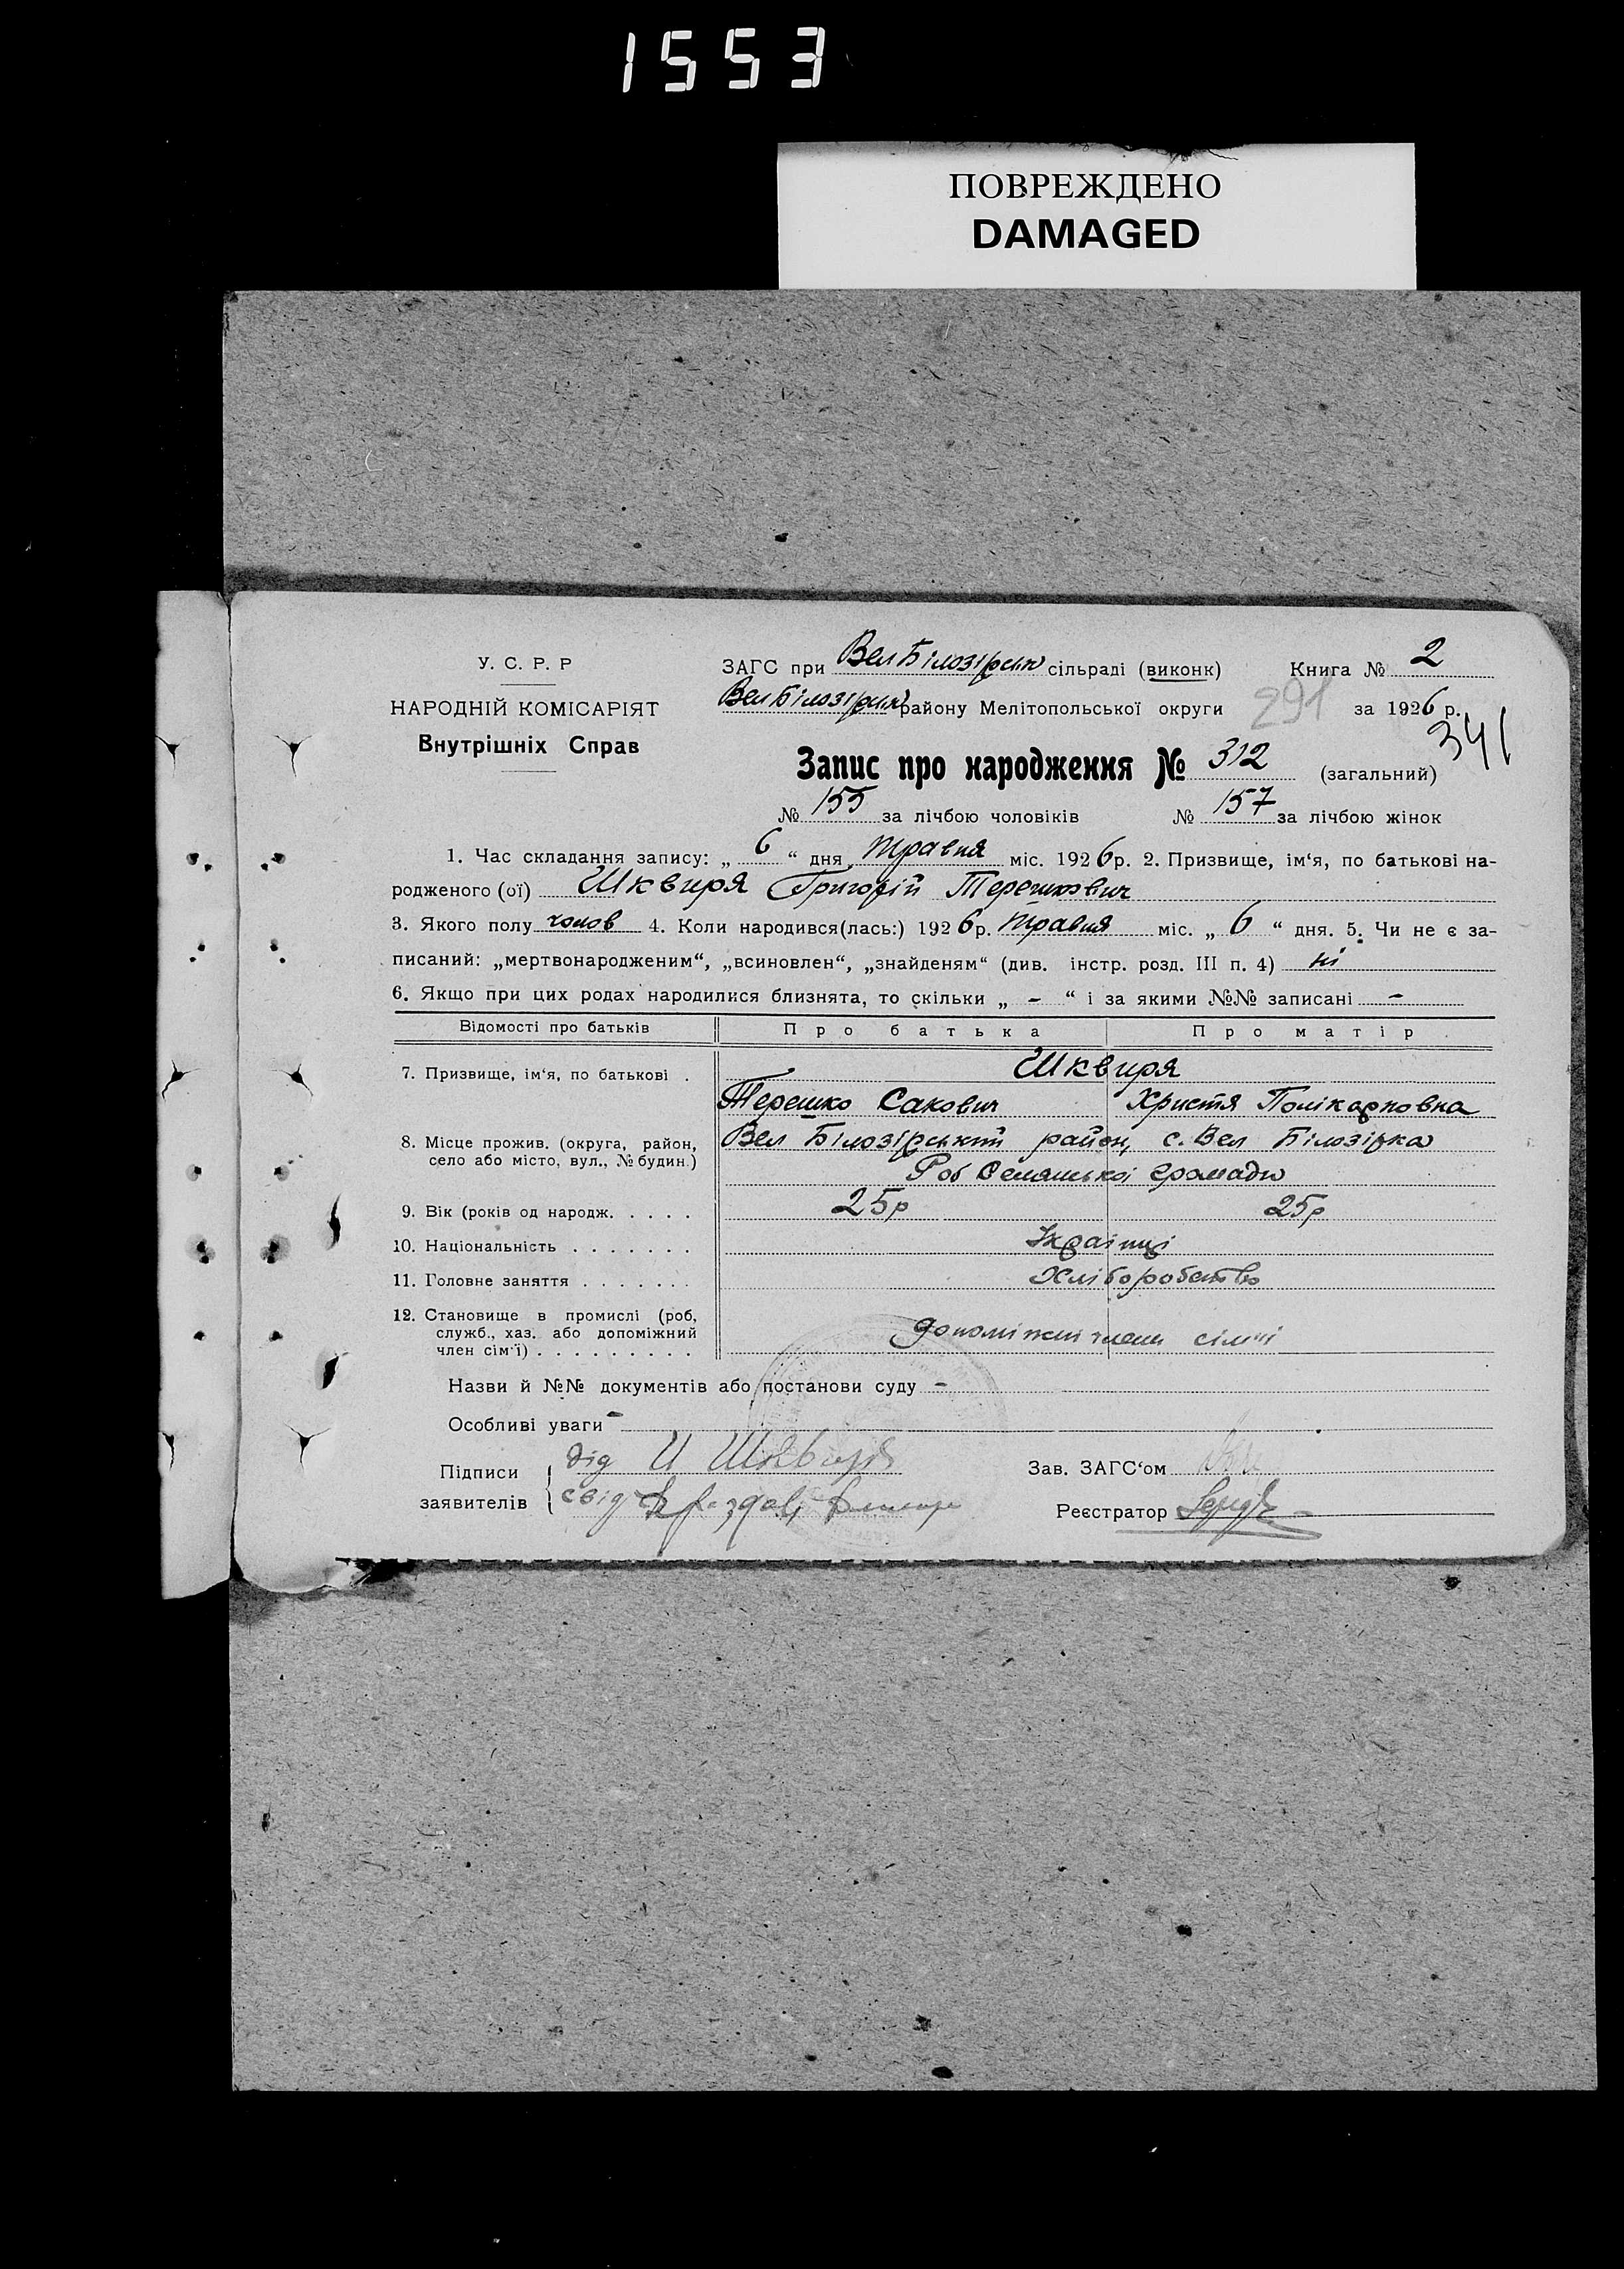 1553
ПОВРЕЖДЕНО
DAMAGED
У. С. Р. Р
НАРОДНІЙ КОМІСАРІЯТ
Внутрішніх Справ
ЗАГС при Вел Білозірськ сільраді (виконк) Книга № 2
Вел Білозірськ району Мелітопольської округи 291 за 1926 р.
341
Запис про народження № 312 (загальний)
№ 155 за лічбою чоловіків № 157 за лічбою жінок
1. Час складання запису: „ 6 “ дня Травня міс. 1926 р. 2. Призвище, ім‘я, по батькові на-
родженого (ої) Шквиря Григорій Терешкович
3. Якого полу чолов 4. Коли народився(лась:) 1926 р. Травня міс. „ 6 “ дня. 5. Чи не є за-
писаний: „мертвонародженим“, „всиновлен“, „знайденям“ (див. інстр. розд. III п. 4) ні
6. Якщо при цих родах народилися близнята, то скільки „ - “ і за якими №№ записані -
Відомості про батьків Про батька Про матір
7. Призвище, ім‘я, по батькові . Шквиря
Терешко Сакович Христя Полікарповна
8. Місце прожив. (округа, район, село або місто, вул., № будин.) Вел Білозірський район, с. Вел Білозірка
громади
9. Вік (років од народж. . . . . 25р 25р
10. Національність . . . . . . . Українці
11. Головне заняття . . . . . . . Хліборобство
12. Становище в промислі (роб, служб., хаз. або допоміжний член сім‘ї) . . . . . . . . . допоміжні члени сім'ї
Назви й №№ документів або постанови суду -
Особливі уваги -
Підписи заявителів дід Шквиря
свід
Зав. ЗАГС‘ом
Реєстратор